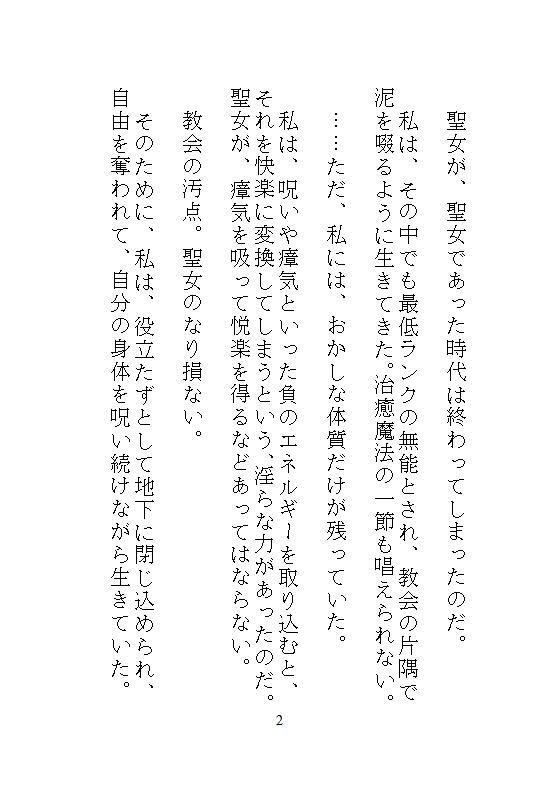 聖女が、聖女であった時代は終わってしまったのだ。
私は、その中でも最低ランクの無能とされ、教会の片隅で
泥を啜るように生きてきた。治癒魔法の一節も唱えられない。
……ただ、私には、おかしな体質だけが残っていた。
私は、呪いや瘴気といった負のエネルギーを取り込むと、
それを快楽に変換してしまうという、淫らな力があったのだ。
聖女が、瘴気を吸って悦楽を得るなどあってはならない。
教会の汚点。聖女のなり損ない。
そのために、私は、役立たずとして地下に閉じ込められ、
自由を奪われて、自分の身体を呪い続けながら生きていた。
2